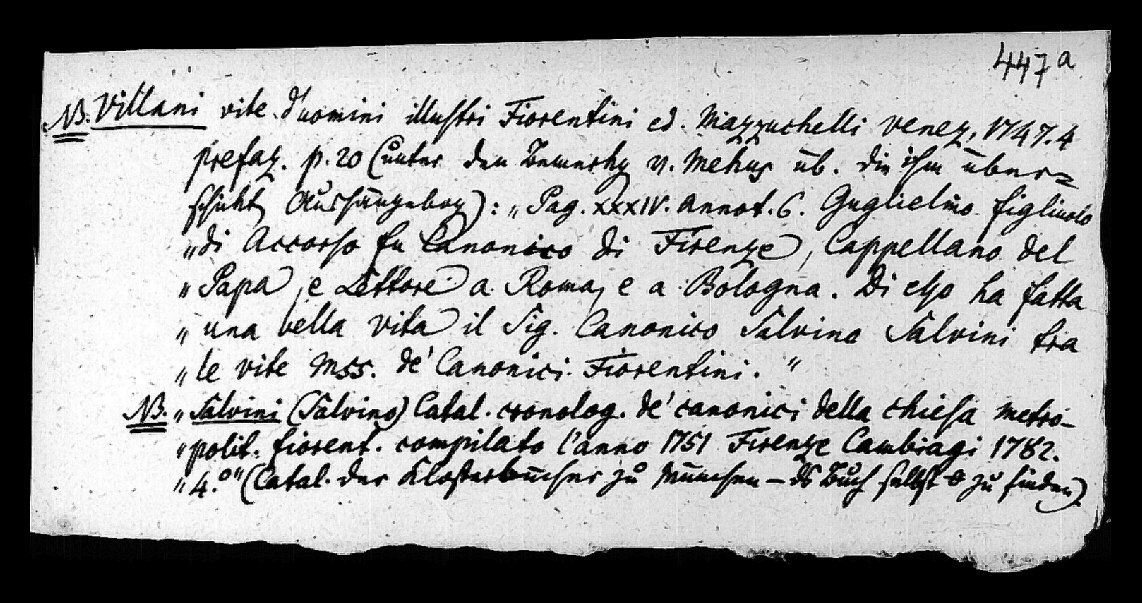 447a
NB. Villani vite d'uomini illustri Fiorentini ed. Mazzuchelli venez. 1747. 4
prefaz. p. 20 (unter den Bemerkg v. Mehus üb. die ihm über=
schickt Aushängebog): „Pag. XXXIV. annot. 6. Guglielmo figliuolo
„di Accorso fu Canonico di Firenze, Cappellano del
„Papa, e Lettore a Roma, e a Bologna. Di esso ha fatta
„una bella vita il Sig. Canonico Salvino Salvini tra
„le vite mss. de' Canonici Fiorentini."
NB. „Salvini (Salvino) Catal. cronolog. de' canonici della chiesa metro-
„polit. fiorent. compilato l'anno 1751 Firenze Cambiagi 1782.
„4.o" (Catal. der Klosterbücher zu München – ds Buch selbst zu finden)